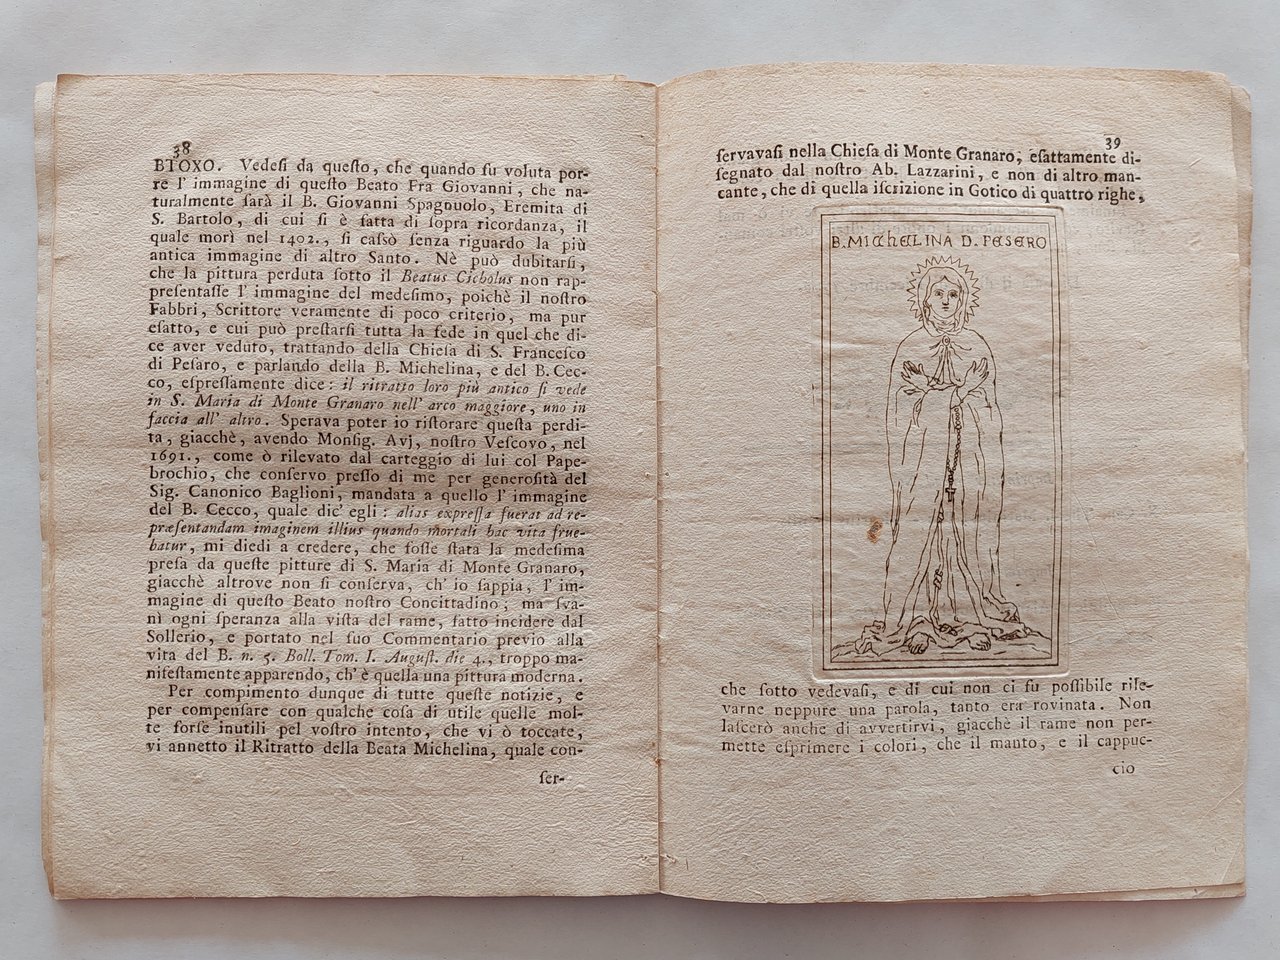 38
BTOXO. Vedeſi da queſto, che quando fu voluta por-
re l' immagine di queſto Beato Fra Giovanni, che na-
turalmente ſarà il B. Giovanni Spagnuolo, Eremita di
S. Bartolo, di cui ſi è fatta di ſopra ricordanza, il
quale morì nel 1402., ſi caſsò ſenza riguardo la più
antica immagine di altro Santo. Nè può dubitarſi,
che la pittura perduta ſotto il Beatus Cicholus non rap-
preſentaſſe l' immagine del medeſimo, poichè il noſtro
Fabbri, Scrittore veramente di poco criterio, ma pur
eſatto, e cui può preſtarſi tutta la fede in quel che di-
ce aver veduto, trattando della Chieſa di S. Franceſco
di Peſaro, e parlando della B. Michelina, e del B. Cec-
co, eſpreſſamente dice: il ritratto loro più antico ſi vede
in S. Maria di Monte Granaro nell' arco maggiore, uno in
faccia all' altro. Sperava poter io riſtorare queſta perdi-
ta, giacchè, avendo Monſig. Avj, noſtro Veſcovo, nel
1691., come ò rilevato dal carteggio di lui col Pape-
brochio, che conſervo preſſo di me per generoſità del
Sig. Canonico Baglioni, mandata a quello l' immagine
del B. Cecco, quale dic' egli: alias expreſſa fuerat ad re-
præſentandam imaginem illius quando mortali hac vita frue-
batur, mi diedi a credere, che foſſe ſtata la medeſima
preſa da queſte pitture di S. Maria di Monte Granaro,
giacchè altrove non ſi conſerva, ch' io ſappia, l' im-
magine di queſto Beato noſtro Concittadino; ma ſva-
nì ogni ſperanza alla viſta del rame, fatto incidere dal
Sollerio, e portato nel ſuo Commentario previo alla
vita del B. n. 5. Boll. Tom. I. Auguſt. die 4., troppo ma-
nifeſtamente apparendo, ch' è quella una pittura moderna.
Per compimento dunque di tutte queſte notizie, e
per compenſare con qualche coſa di utile quelle mol-
te forſe inutili pel voſtro intento, che vi ò toccate,
vi annetto il Ritratto della Beata Michelina, quale con-
ſer-
39
ſervavaſi nella Chieſa di Monte Granaro, eſattamente di-
ſegnato dal noſtro Ab. Lazzarini, e non di altro man-
cante, che di quella iſcrizione in Gotico di quattro righe,
B. MICHELINA D. PESERO
che ſotto vedevaſi, e di cui non ci fu poſſibile rile-
varne neppure una parola, tanto era rovinata. Non
laſcerò anche di avvertirvi, giacchè il rame non per-
mette eſprimere i colori, che il manto, e il cappuc-
cio